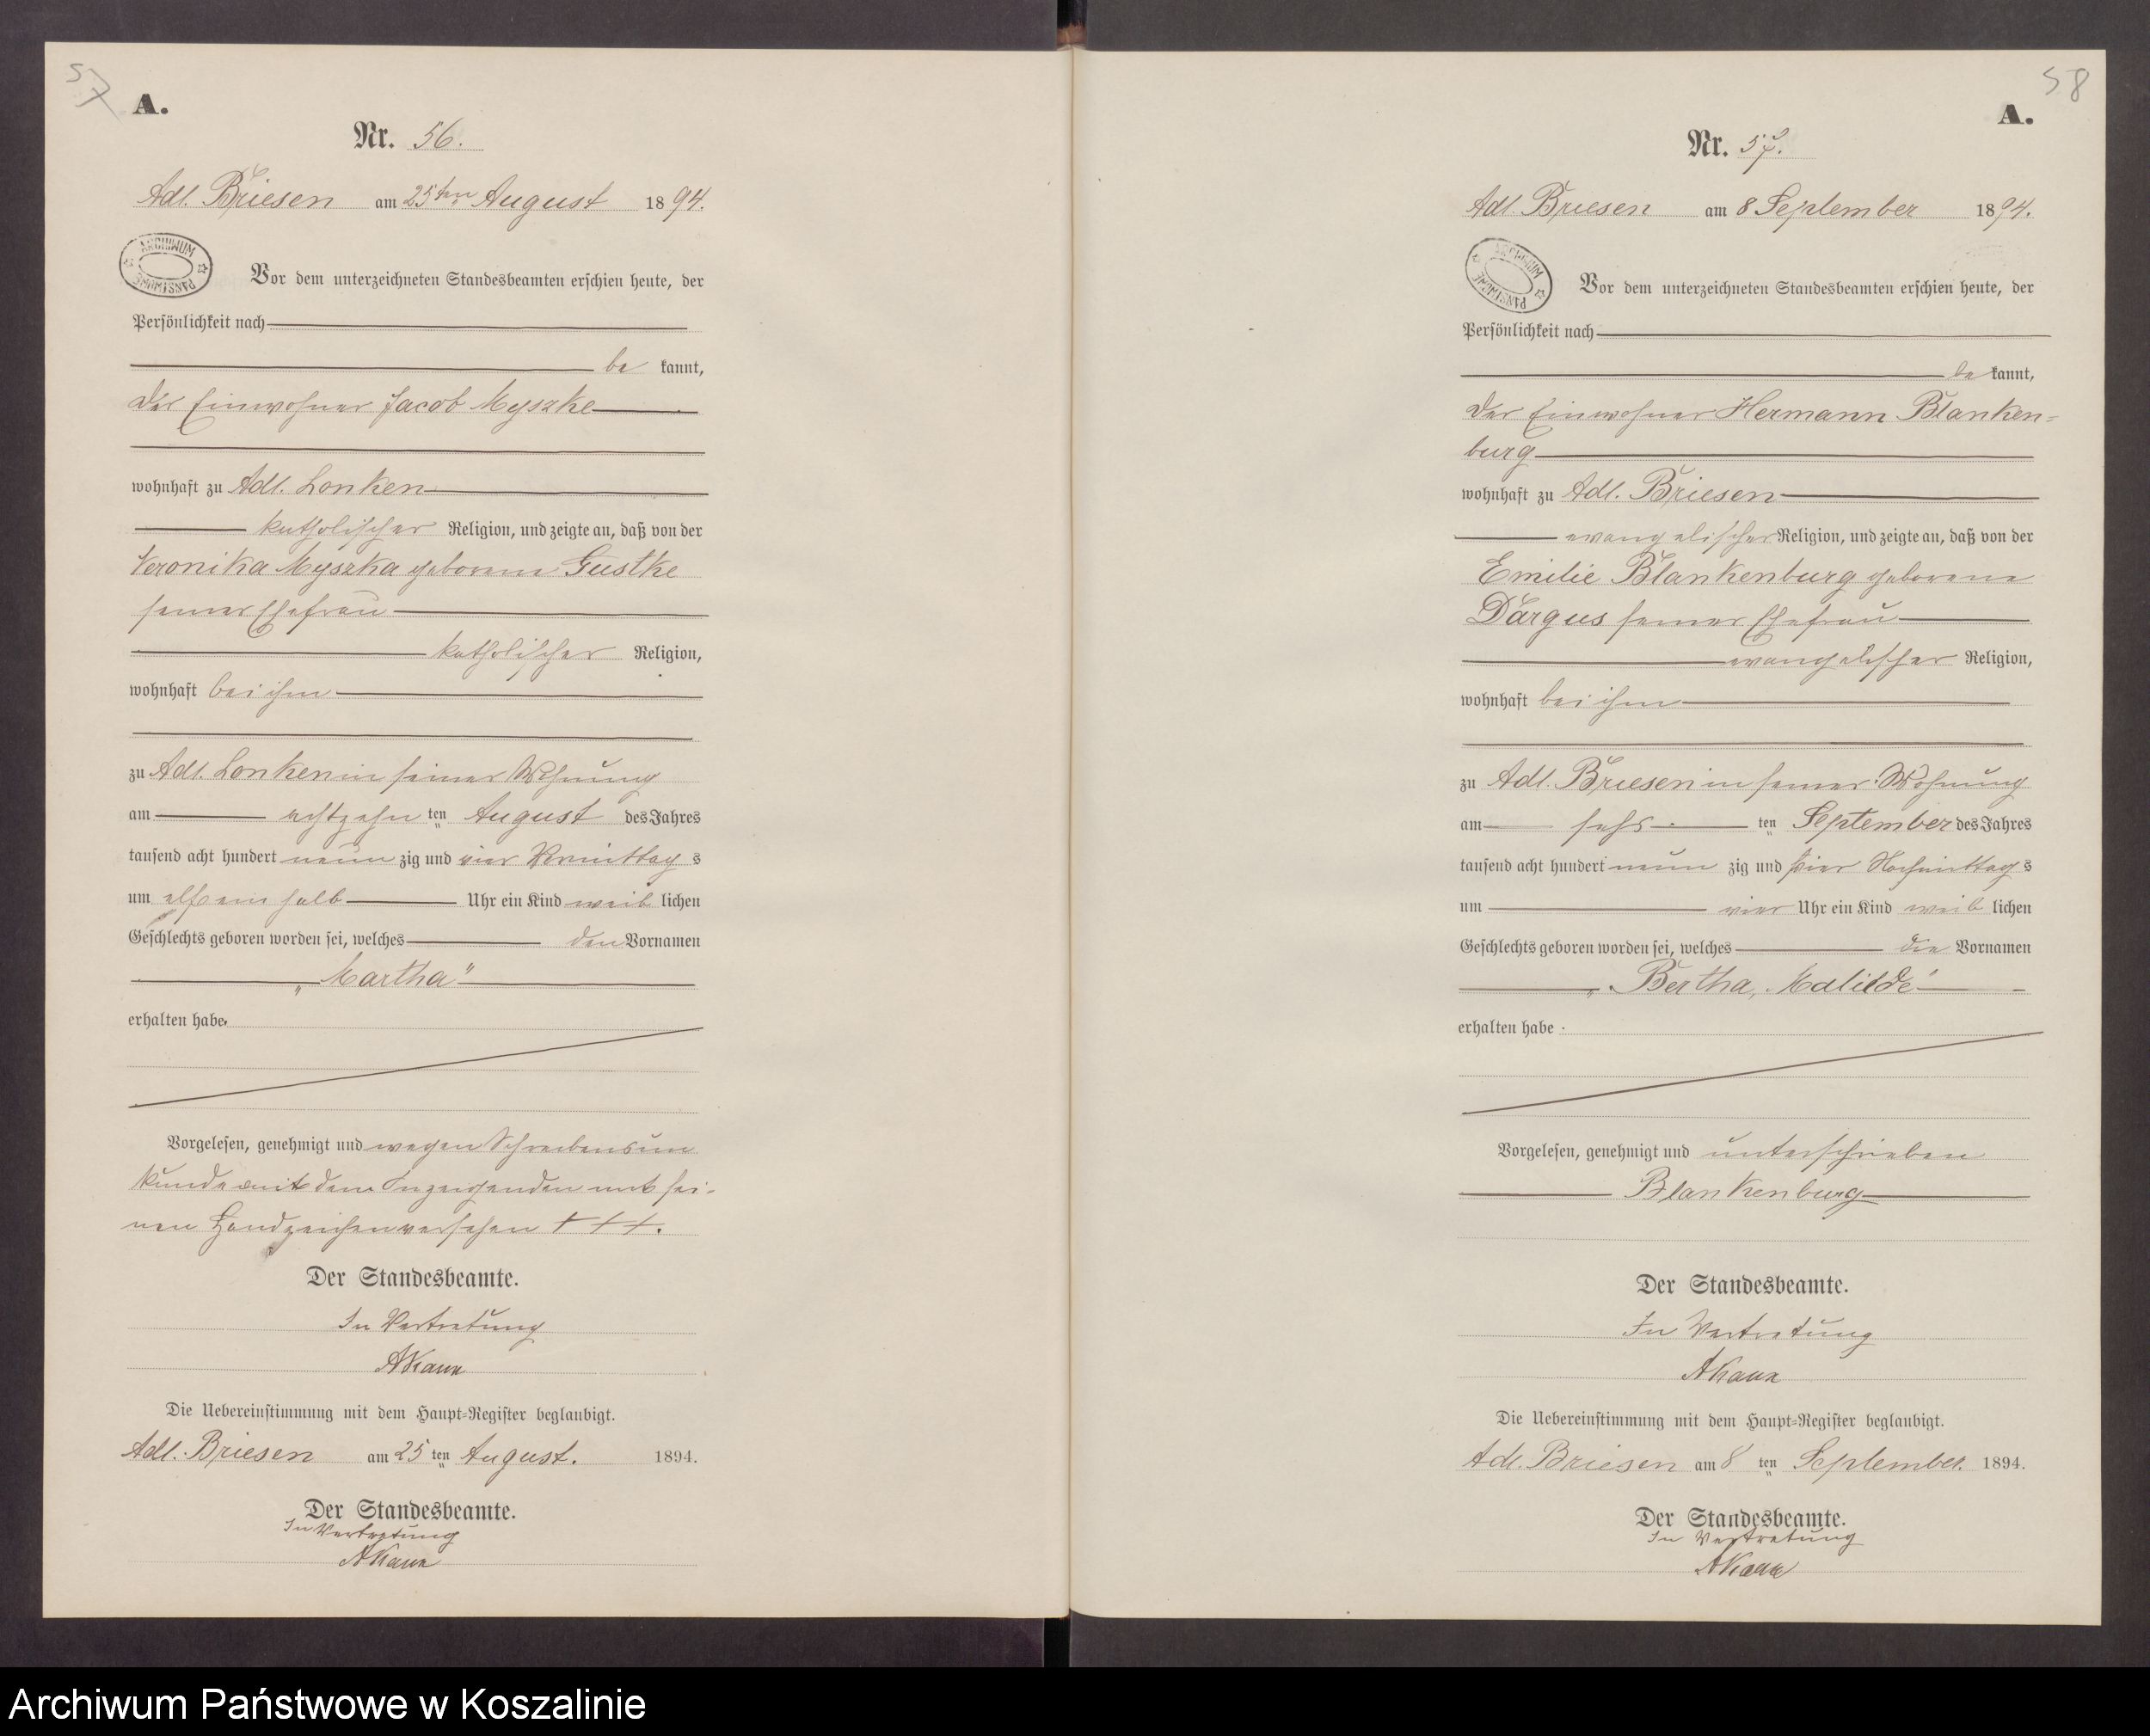 57
A.
Nr. 56.
Adl. Briesen am 25ten August 1894.
ARCHIWUM PAŃSTWOWE
Vor dem unterzeichneten Standesbeamten erschien heute, der
Persönlichkeit nach
be kannt,
der Einwohner Jacob Myszke
wohnhaft zu Adl. Lonken
katholischer Religion, und zeigte an, daß von der
Veronika Myszka geborene Gustke
seiner Ehefrau
katholischer Religion,
wohnhaft bei ihm
zu Adl. Lonken in seiner Wohnung
am achtzehn ten August des Jahres
tausend acht hundert neun zig und vier Vormittag s
um elf ein halb Uhr ein Kind weib lichen
Geschlechts geboren worden sei, welches den Vornamen
„Martha"
erhalten habe.
Vorgelesen, genehmigt und wegen Schreibensun
kunde mit dem Anzeigenden mit sei-
nen Handzeichen versehen + + +.
Der Standesbeamte.
In Vertretung
Die Uebereinstimmung mit dem Haupt-Register beglaubigt.
Adl. Briesen am 25 ten August. 1894.
Der Standesbeamte.
In Vertretung
58
A.
Nr. 57.
Adl. Briesen am 8 September 1894.
ARCHIWUM PAŃSTWOWE
Vor dem unterzeichneten Standesbeamten erschien heute, der
Persönlichkeit nach
be kannt,
der Einwohner Hermann Blanken-
burg
wohnhaft zu Adl. Briesen
evangelischer Religion, und zeigte an, daß von der
Emilie Blankenburg geborene
Dargus seiner Ehefrau
evangelischer Religion,
wohnhaft bei ihm
zu Adl. Briesen in seiner Wohnung
am sechs ten September des Jahres
tausend acht hundert neun zig und vier Nachmittag s
um vier Uhr ein Kind weib lichen
Geschlechts geboren worden sei, welches die Vornamen
„Bertha, Malilde"
erhalten habe.
Vorgelesen, genehmigt und unterschrieben
Blankenburg
Der Standesbeamte.
In Vertretung
Die Uebereinstimmung mit dem Haupt-Register beglaubigt.
Adl. Briesen am 8 ten September. 1894.
Der Standesbeamte.
In Vertretung
Archiwum Państwowe w Koszalinie